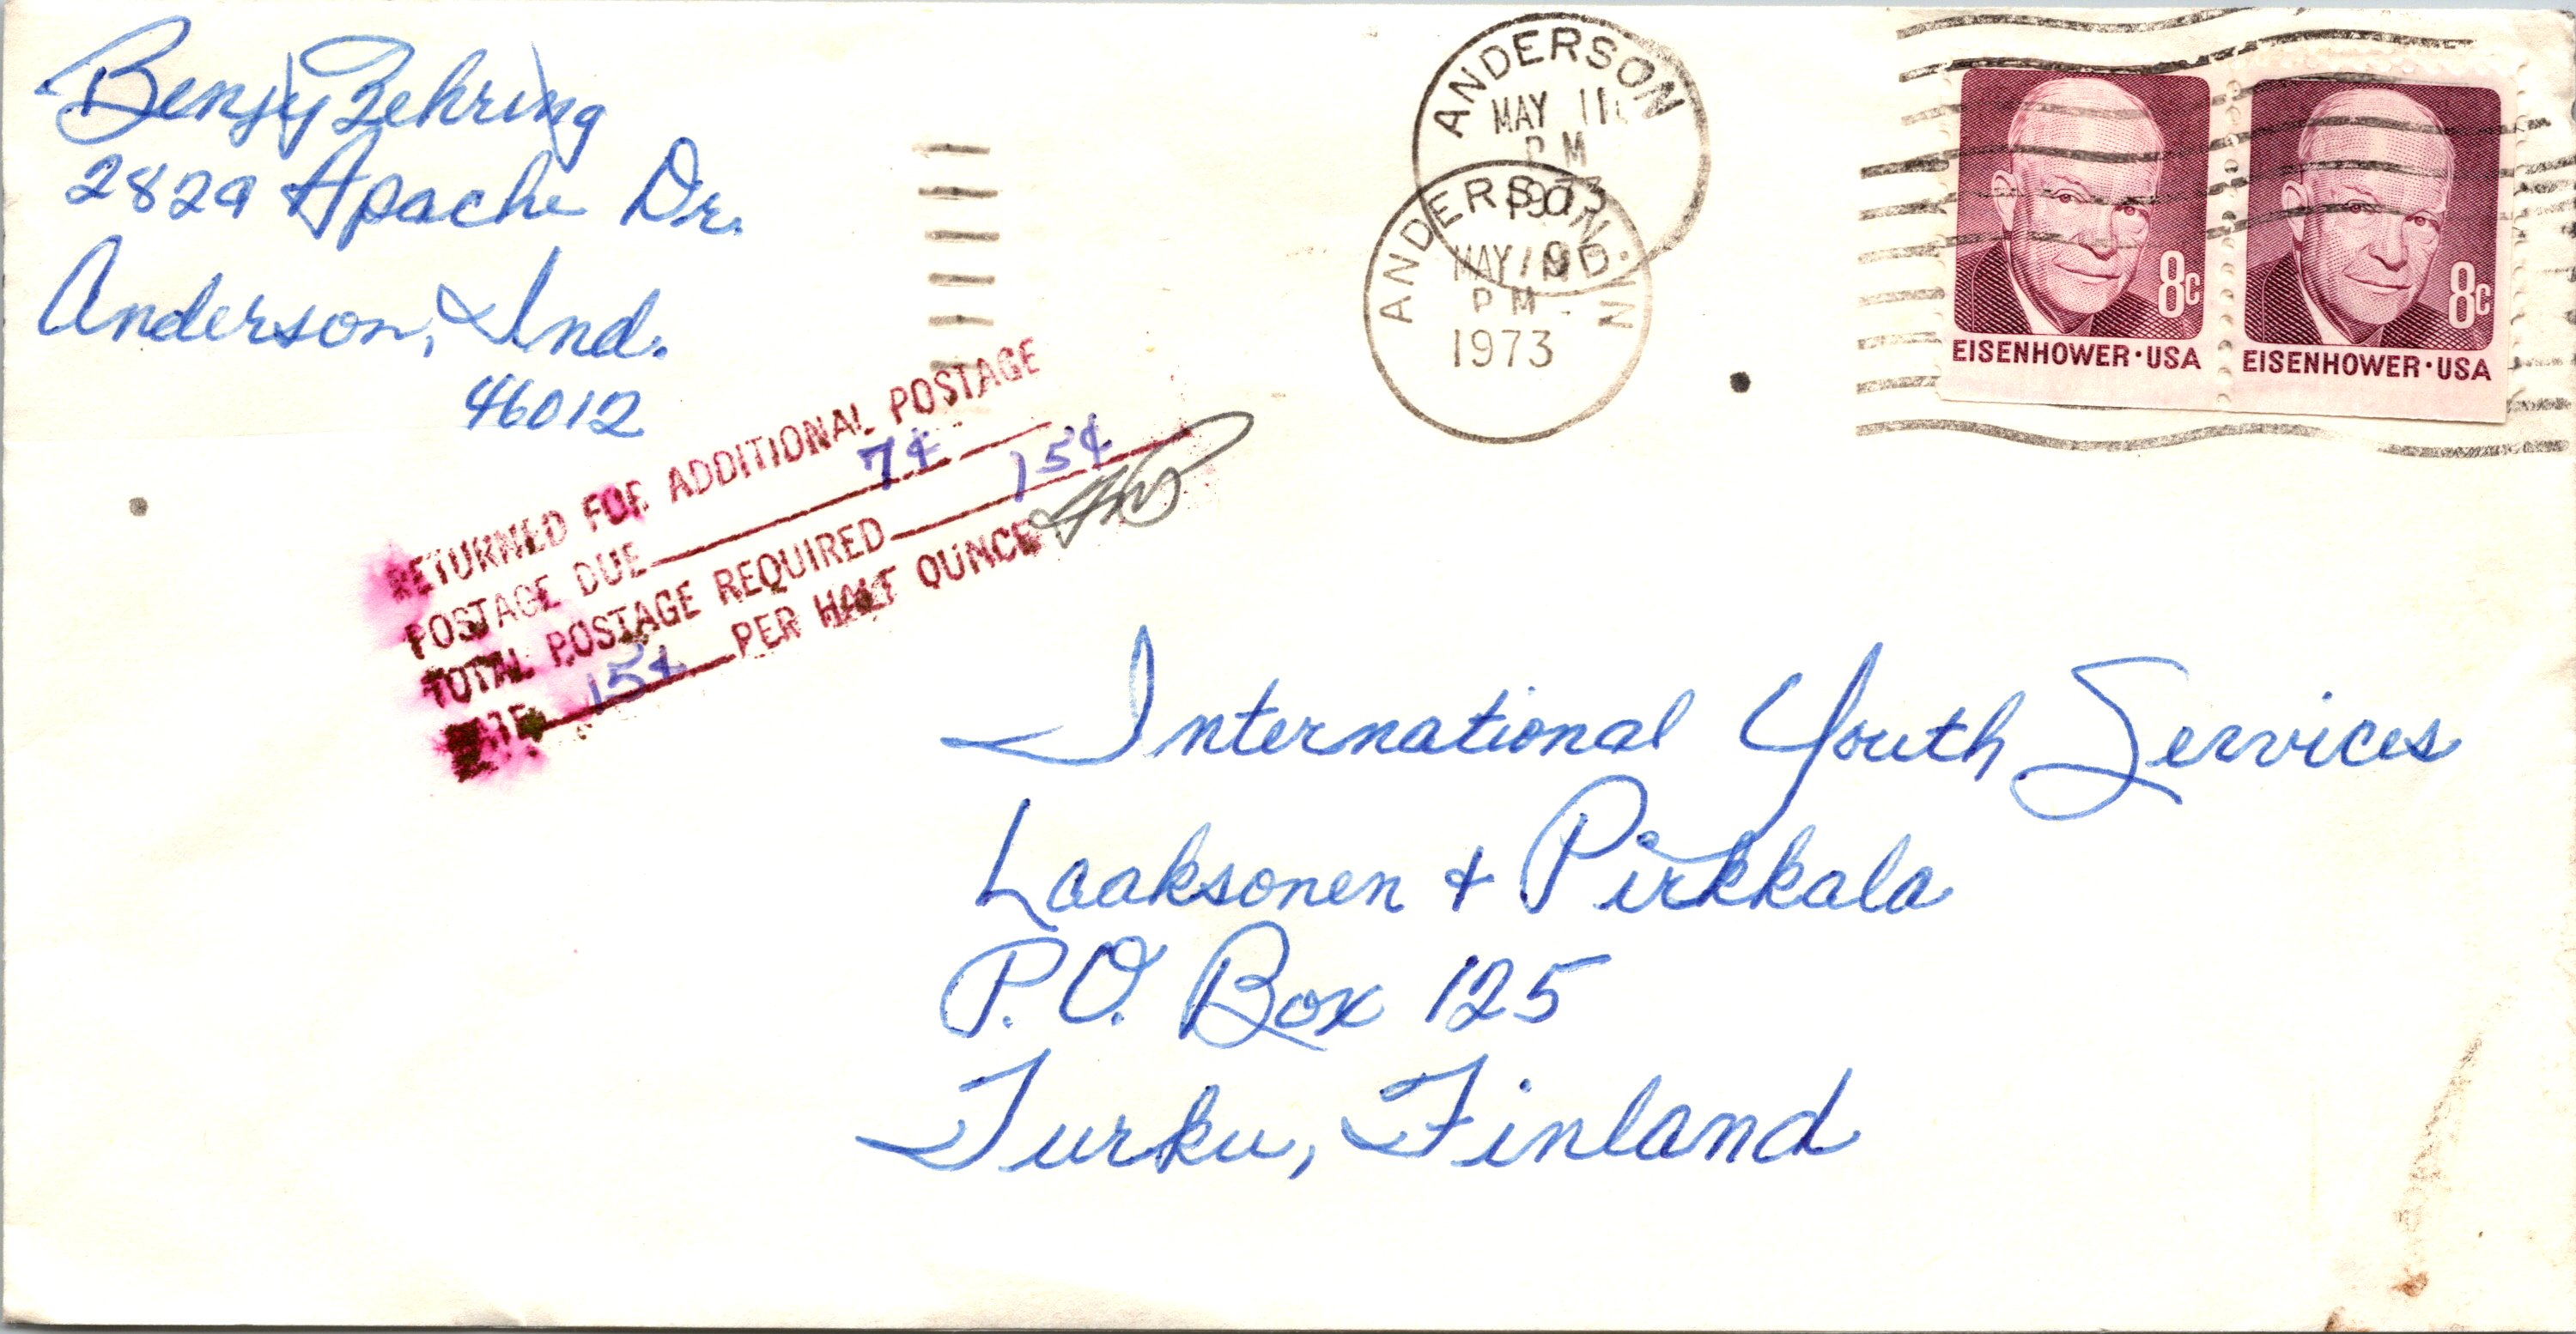 Benjy Zehring
2829 Apache Dr.
Anderson, Ind.
46012
ANDERSON
MAY 11
PM
1973
ANDERSON, IN
MAY
PM
1973
8c
EISENHOWER·USA
8c
EISENHOWER·USA
RETURNED FOR ADDITIONAL POSTAGE
POSTAGE DUE 7¢
TOTAL POSTAGE REQUIRED 15¢
RATE 15¢ PER HALF OUNCE
International Youth Services
Laaksonen & Pirkkala
P.O. Box 125
Turku, Finland